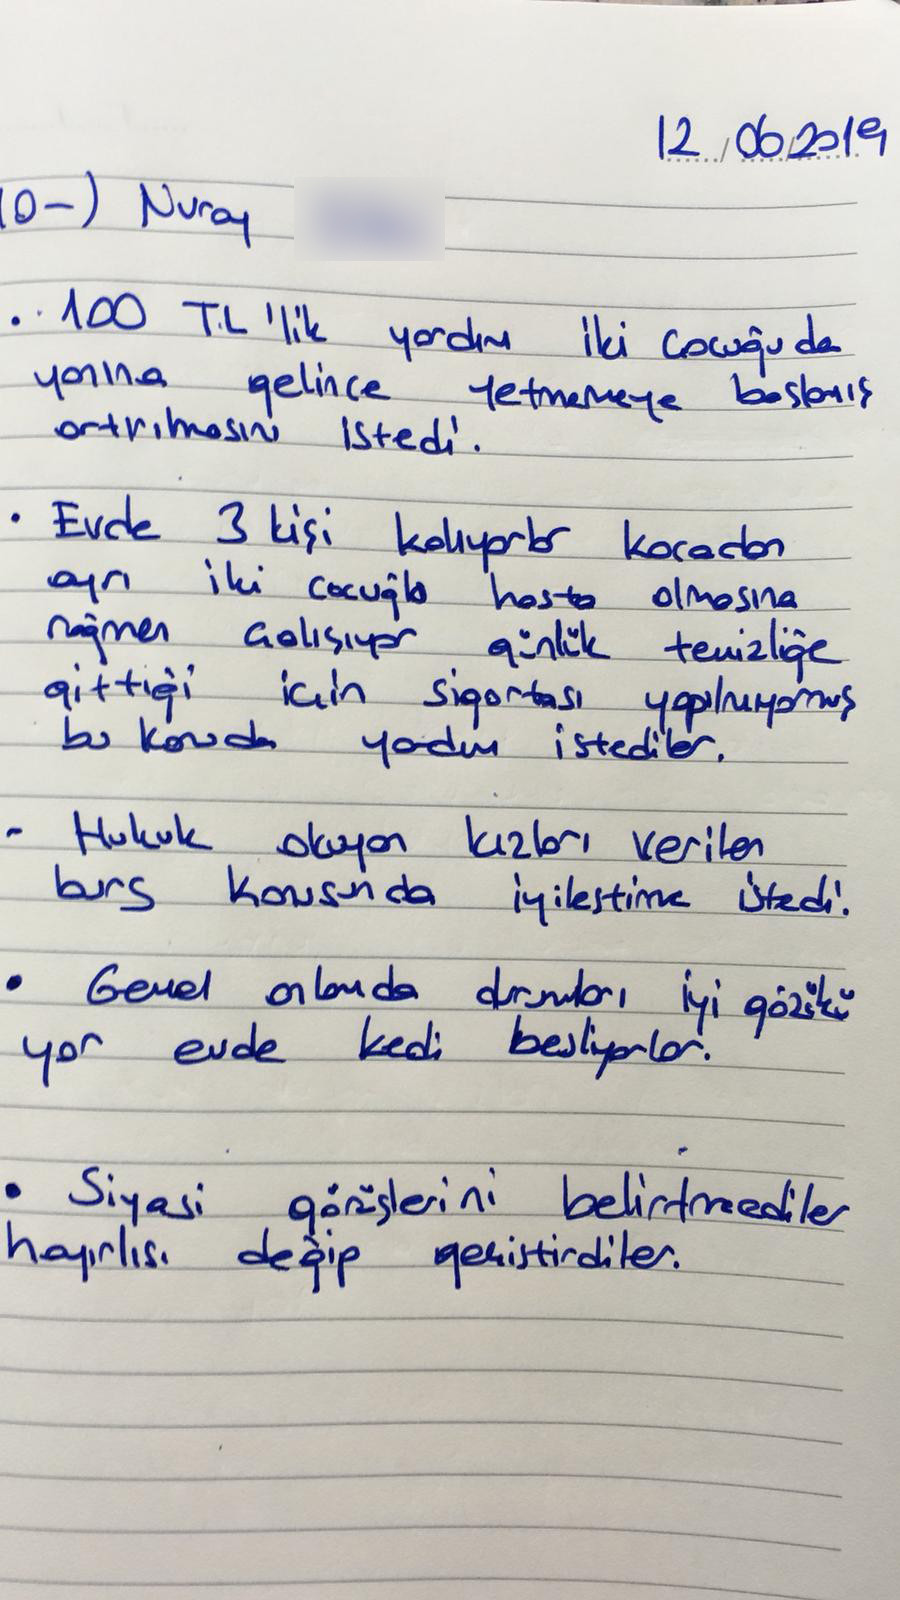 12/06/2019
10-) Nuray
. 100 TL'lik yardım iki çocuğu da
yanına gelince yetmemeye başlamış
artrılmasını istedi.
• Evde 3 kişi kalıyorlar kocadan
ayrı iki çocuğla hasta olmasına
rağmen çalışıyor günlük temizliğe
gittiği için sigortası yapılmıyomuş
bu konuda yardım istediler.
- Hukuk okuyan kızları verilen
burs konusunda iyileştirme istedi.
• Genel anlamda durumları iyi gözükü
yor evde kedi besliyorlar.
• Siyasi görüşlerini belirtmediler
hayırlısı değip geçiştirdiler.